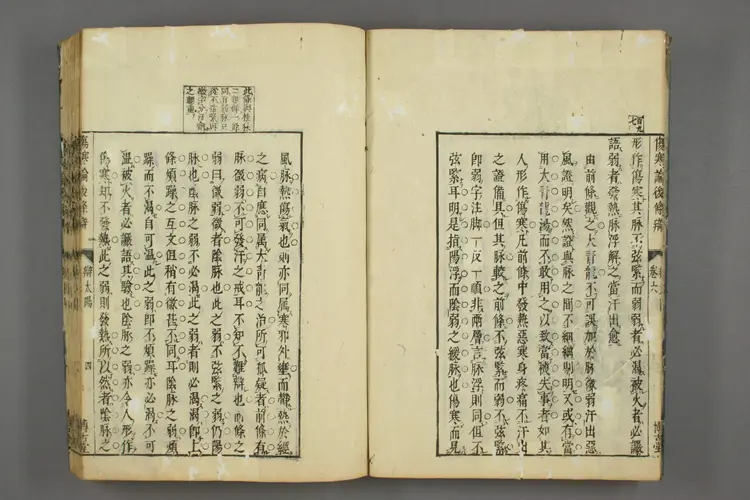 傷寒論後條辨
卷六
博古堂
百九
七
形作傷寒其脉不弦緊而弱弱者必渴被火者必讝
語弱者發熱脉浮解之當汗出愈
由前條觀之大青龍不可誤加於脉微弱汗出惡
風證明矣然證與脉之間不細細明又或有當
用大青龍湯而不敢用之以致當被失事者如其
人形作傷寒凡前條中發熱惡寒身疼痛不汗出
之證備具但其脉較之前條不弦緊而弱不弦緊
即弱字注脚一反一順非兩層言脉浮則同但不
弦緊耳明是指陽浮而陰弱之緩脉也傷寒而見
此條與桂枝
之輕重
風脉熱傷氣也則亦同屬寒邪外壅而鬱熱於經
之病自應同屬大青龍之治所可狐疑者前條有
脉微弱不可發汗之戒耳不知不難辯也前條之
弱曰微弱微者陰脉也此之弱不弦緊之弱仍陽
脉也陰脉之弱不必渴此之弱者則必渴渴即上
條煩躁之互文但稍有微甚不同耳陰脉之煩
躁而不渴自可溫此之弱即不煩躁亦必渴不可
溫被火者必讝語其驗也陰脉之弱亦令人形作
傷寒却不發熱此之弱則發熱所以然者陰脉之
傷寒論後條辨
辯太陽
四
博古堂